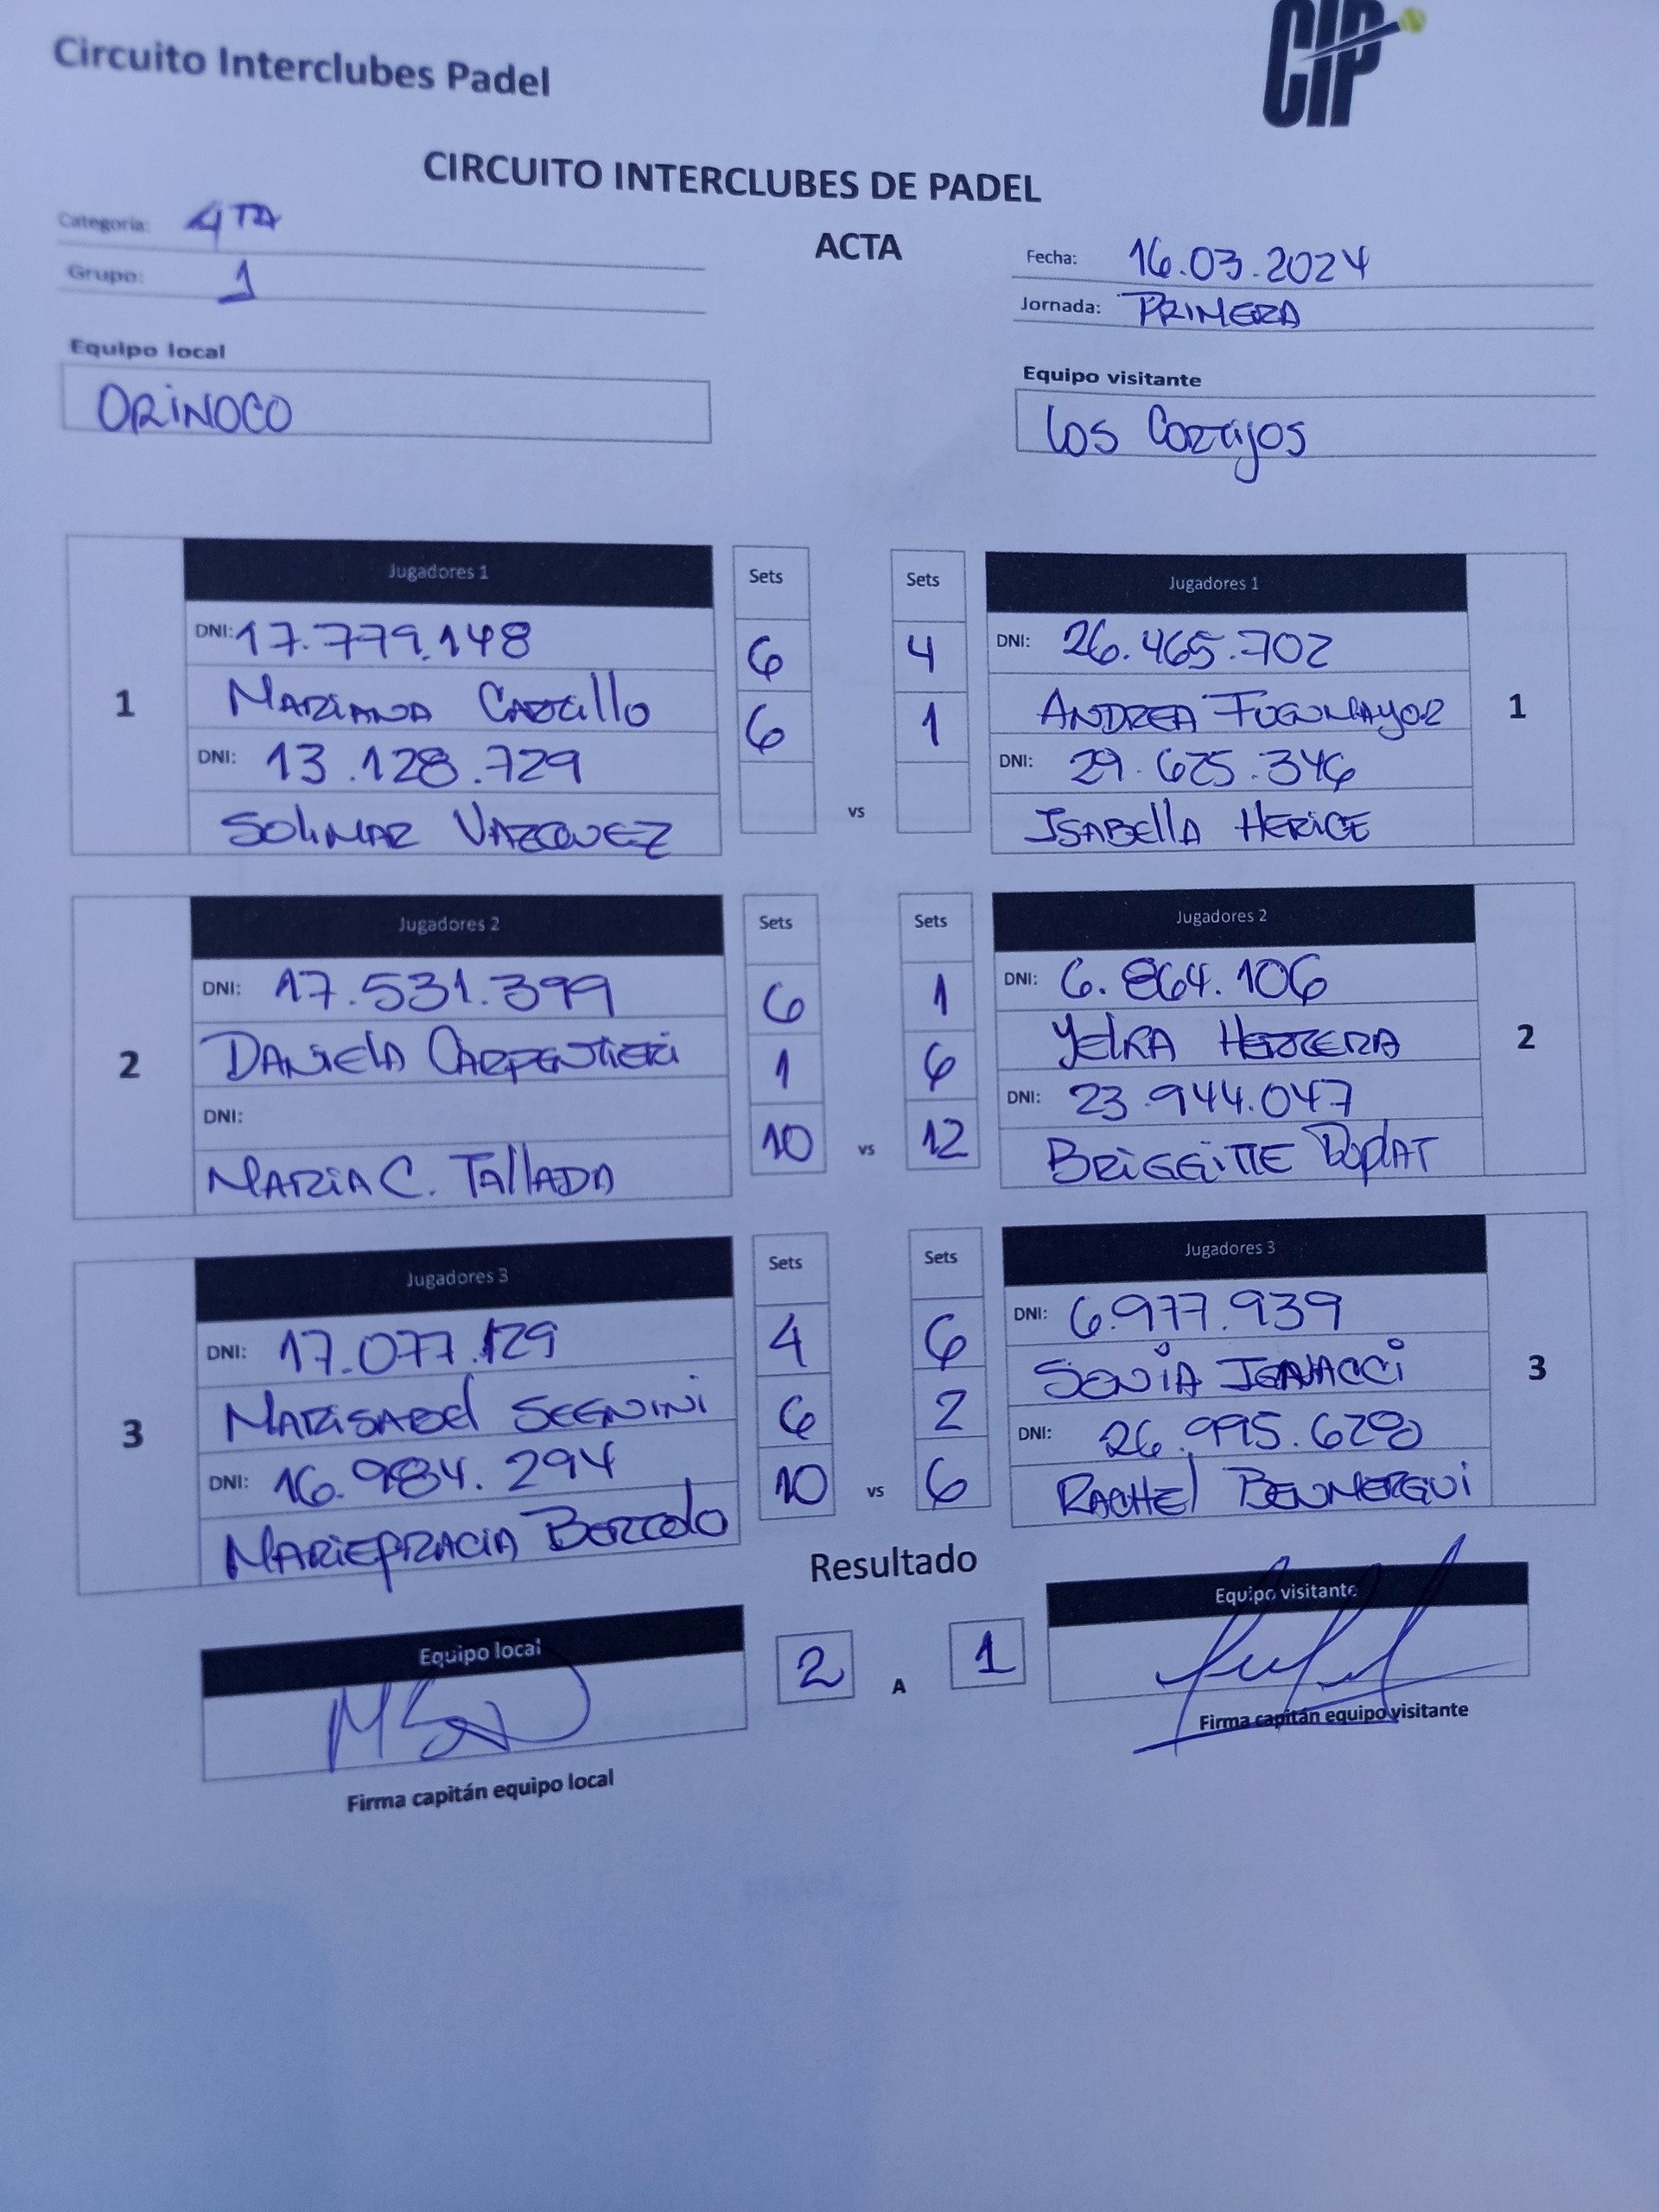 Circuito Interclubes Padel
CIP
CIRCUITO INTERCLUBES DE PADEL
ACTA
Categoria: 4TA
Grupo: 1
Fecha: 16.03.2024
Jornada: PRIMERA
Equipo local
ORINOCO
Equipo visitante
Los Cortijos
1
Jugadores 1
DNI: 17.779.148
MARIANA CARRILLO
DNI: 13.128.729
SOLIMAR VAZQUEZ
Sets
6
6
vs
Sets
4
1
Jugadores 1
DNI: 26.465.702
ANDREA FUGUMAYOR
DNI: 29.675.346
ISABELLA HERICE
1
2
Jugadores 2
DNI: 17.531.399
DANIELA CARPENTIERI
DNI:
MARIA C. TALLADA
Sets
6
1
10
vs
Sets
1
6
12
Jugadores 2
DNI: 6.864.106
YELRA HERRERA
DNI: 23.944.047
BRIGGITTE
2
3
Jugadores 3
DNI: 17.077.129
MARISABEL SEGNINI
DNI: 16.984.294
MARIEGRACIA
Sets
4
6
10
vs
Sets
6
2
6
Jugadores 3
DNI: 6.977.939
SONIA IGNACCI
DNI: 26.995.678
RACHEL BENMERGUI
3
Resultado
Equipo local
2
A
1
Equipo visitante
Firma capitán equipo local
Firma capitán equipo visitante